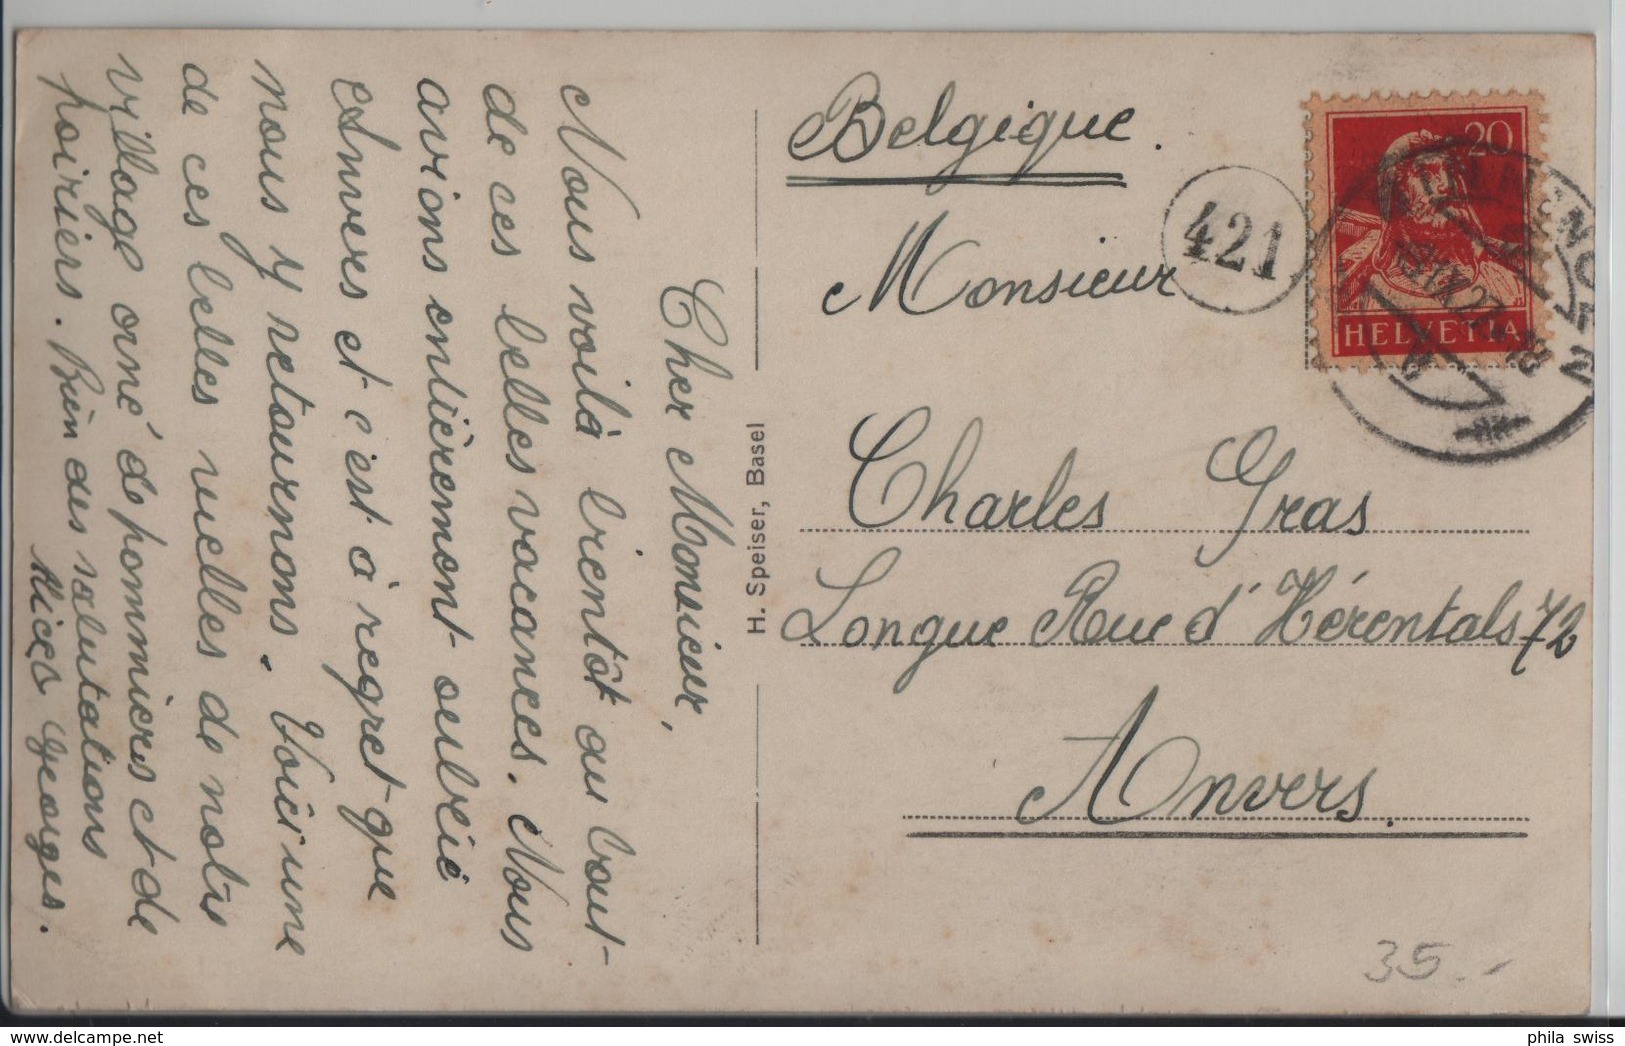 Cher Monsieur,
Nous voilà bientôt au bout
de ces belles vacances. Nous
avions entièrement oublié
Anvers et c'est à regret que
nous y retournons. Voici une
de ces belles ruelles de notre
village orné de pommiers et de
poiriers. Bien des salutations
Georges.
H. Speiser, Basel
Belgique.
Monsieur
Charles Gras
Longue Rue d'Hérentals 72
Anvers.
421
20
HELVETIA
35.-
phila swiss